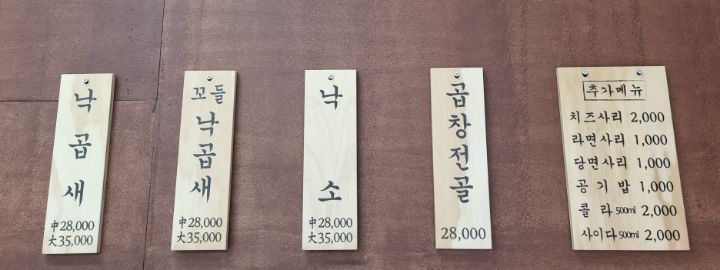 낙곱새
中 28,000
大 35,000
꼬들
낙곱새
中 28,000
大 35,000
낙소
中 28,000
大 35,000
곱창전골
28,000
추가메뉴
치즈사리 2,000
라면사리 1,000
당면사리 1,000
공기밥 1,000
콜라 500ml 2,000
사이다 500ml 2,000